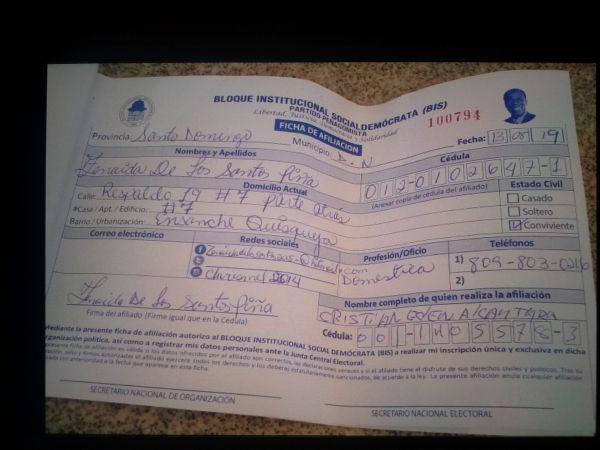 BLOQUE INSTITUCIONAL SOCIALDEMÓCRATA (BIS)
PARTIDO PEÑAGOMISTA
Libertad, Justicia, Democracia y Solidaridad
100794
FICHA DE AFILIACIÓN
Provincia: Santo Domingo
Municipio: D.N
Fecha: 13/08/19
Nombres y Apellidos
Cédula
Zenaida De Los Santos Piña
012-0102647-1
(Anexar copia de cédula del afiliado)
Domicilio Actual
Estado Civil
Calle: Respaldo 19 #7 parte atrás
Casado
#Casa / Apt. / Edificio: #7
Soltero
Barrio / Urbanización: Ensanche Quisqueya
Conviviente
Correo electrónico
Redes sociales
Profesión/Oficio
Teléfonos
Domestica
1) 809-803-0216
2)
Nombre completo de quien realiza la afiliación
Zenaida De Los Santos Piña
Firma del afiliado (Firme igual que en la Cédula)
CRISTIAN
Cédula: 001-1405578-3
Mediante la presente ficha de afiliación autorizo al BLOQUE INSTITUCIONAL SOCIALDEMÓCRATA (BIS) a realizar mi inscripción única y exclusiva en dicha
organización política, así como a registrar mis datos personales ante la Junta Central Electoral.
SECRETARIO NACIONAL DE ORGANIZACIÓN
SECRETARIO NACIONAL ELECTORAL